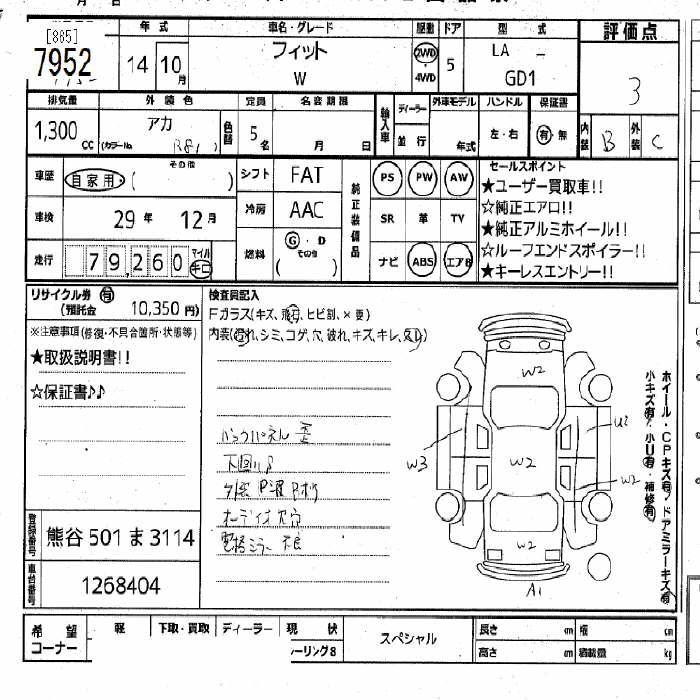 [885]
7952
年式
14 10月
車名・グレード
フィット
W
駆動
2WD
4WD
ドア
5
型式
LA -
GD1
評価点
3
排気量
1,300 CC
外装色
アカ
(カラーNo. R81)
色替
定員
5名
名変期限
月 日
輸入車
ディーラー
並行
外車モデル
年式
ハンドル
左・右
保証書
有・無
内装 B
外装 C
車歴
自家用・( その他 )
シフト
FAT
純正装備品
PS PW AW
車検
29年 12月
冷房
AAC
SR 革 TV
走行
79,260
マイル
キロ
燃料
G・D
その他
( )
ナビ ABS エアB
セールスポイント
★ユーザー買取車!!
☆純正エアロ!!
★純正アルミホイール!!
☆ルーフエンドスポイラー!!
★キーレスエントリー!!
リサイクル券 有
(預託金) 10,350 円)
※注意事項(修復・不具合箇所・状態等)
★取扱説明書!!
☆保証書♪♪
検査員記入
Fガラス(キズ、飛石、ヒビ割、×要)
内装(汚れ、シミ、コゲ、穴、破れ、キズ、キレ、スレ)
バックパネル 歪
下回りS
オーディオ欠品
電格ミラー不良
W2
U2
W3
W2
W2
W2
A1
ホイール・CPキズ有 ドアミラーキズ有
小キズ有 小U有・補修有
登録番号
熊谷 501 ま 3114
車台番号
1268404
希望コーナー
軽
下取・買取
ディーラー
現状
ーリング8
スペシャル
長さ cm
幅 cm
高さ cm
積載量 kg